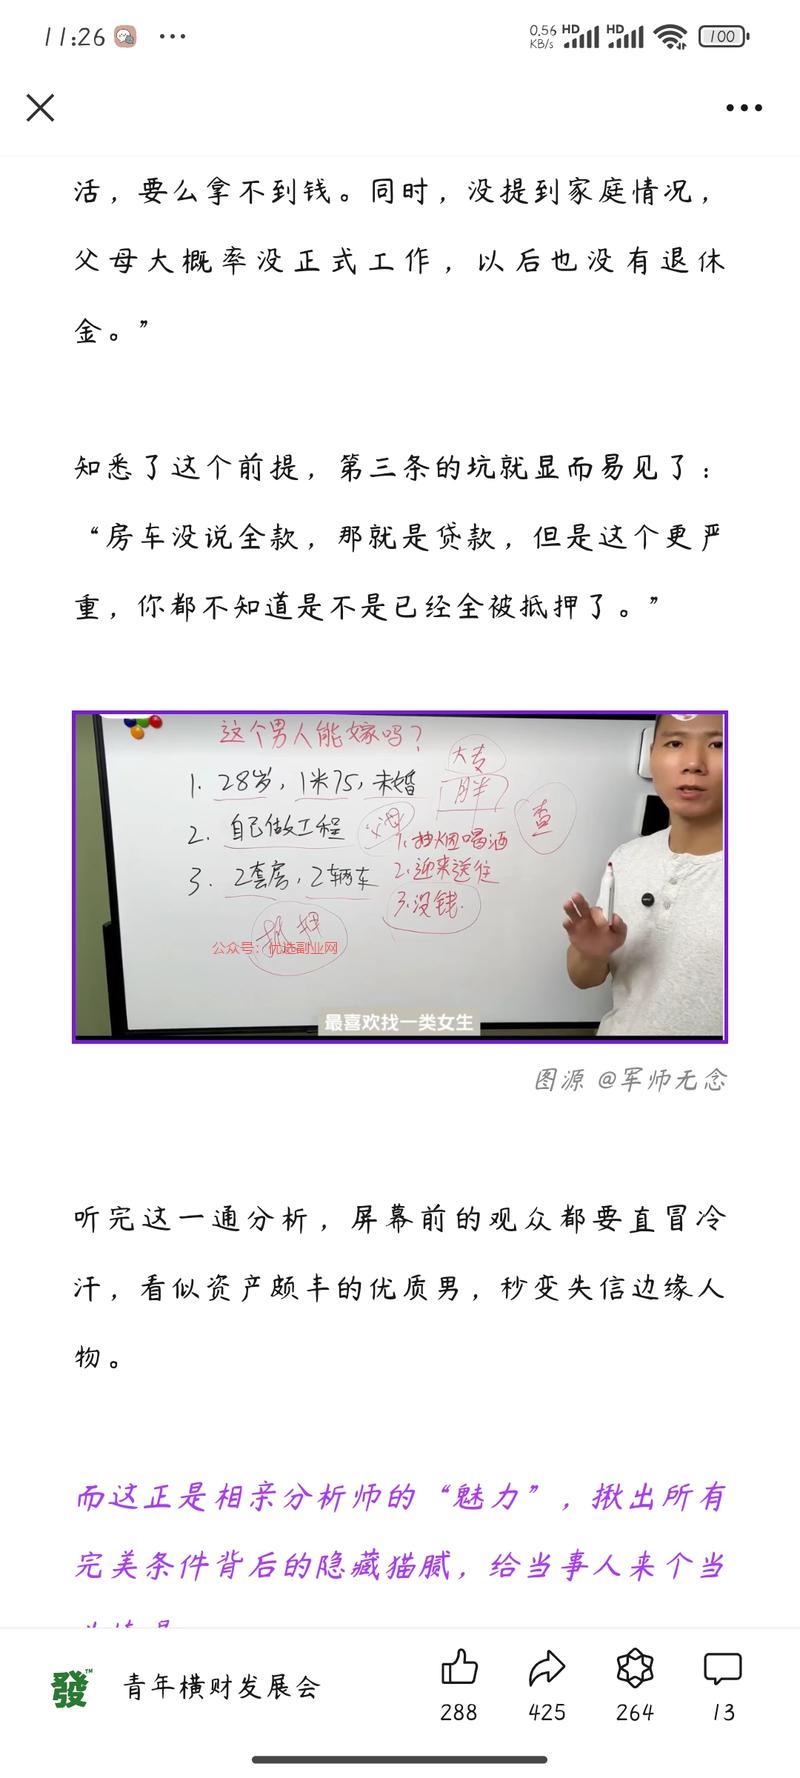 11:26
0.56 KB/s HD HD 100
活，要么拿不到钱。同时，没提到家庭情况，
父母大概率没正式工作，以后也没有退休
金。”
知悉了这个前提，第三条的坑就显而易见了：
“房车没说全款，那就是贷款，但是这个更严
重，你都不知道是不是已经全被抵押了。”
这个男人能嫁吗？
大专
1. 28岁，1米75，未婚
胖
2. 自己做工程
父母
1.抽烟喝酒
查
3. 2套房，2辆车
2.迎来送往
3.没钱.
抵押
公众号：优选副业网
最喜欢找一类女生
图源 @军师无念
听完这一通分析，屏幕前的观众都要直冒冷
汗，看似资产颇丰的优质男，秒变失信边缘人
物。
而这正是相亲分析师的“魅力”，揪出所有
完美条件背后的隐藏猫腻，给当事人来个当
發™ 青年横财发展会
288 425 264 13